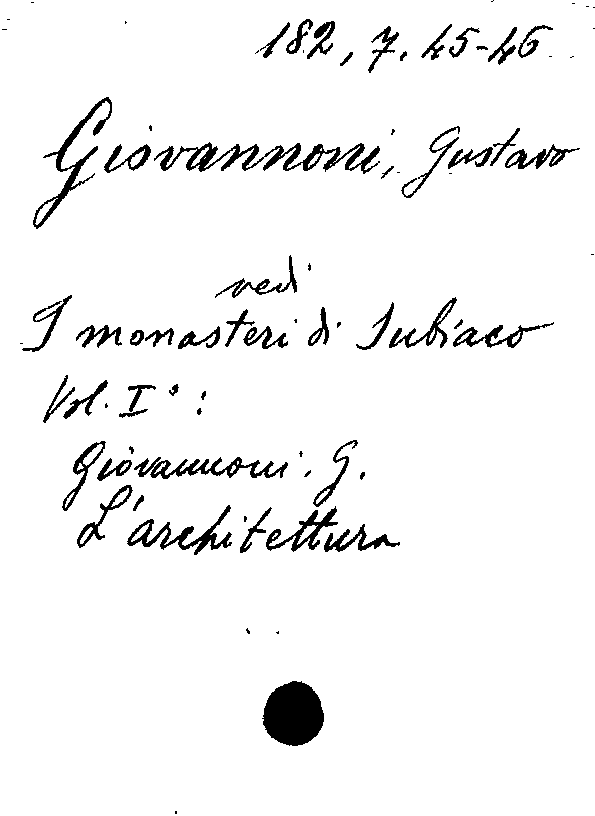 182, 7. 45-46
Giovannoni, Gustavo
vedi
I monasteri di Subiaco
Vol. I° :
Giovannoni. G.
L'architettura